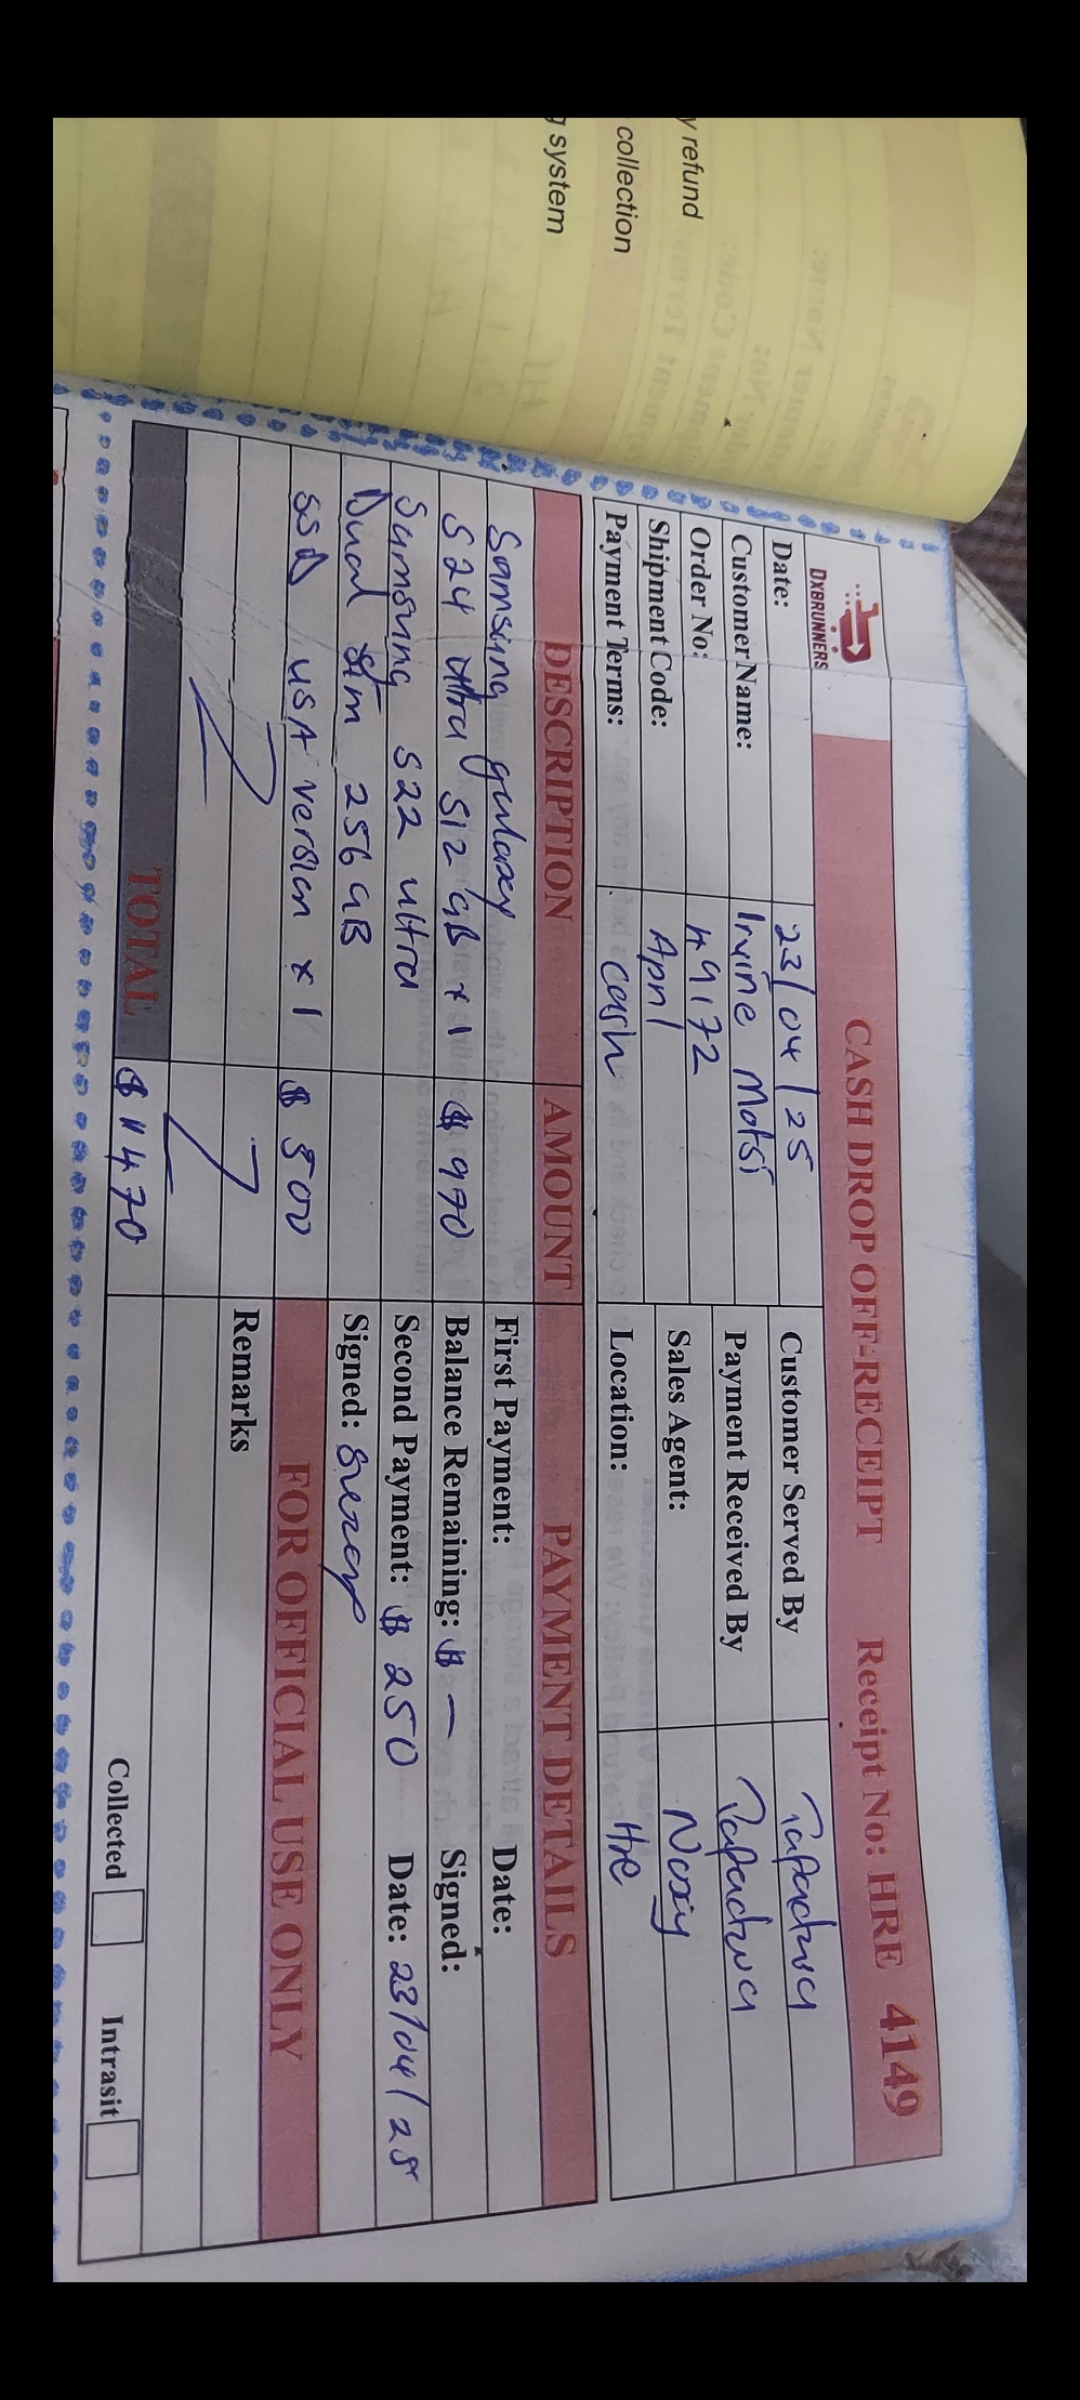 y refund
collection
g system
DXBRUNNERS
CASH DROP OFF-RECEIPT Receipt No: HRE 4149
Date: 23/04/25 Customer Served By Tapadwa
Customer Name: Irvine Motsi Payment Received By Tapadwa
Order No: 49172 Sales Agent: Noxy
Shipment Code: April Location: Hre
Payment Terms: cash
DESCRIPTION AMOUNT PAYMENT DETAILS
Samsung galaxy First Payment: Date:
S24 ultra 512 GB x 1 $ 970 Balance Remaining: $ – Signed:
Samsung S22 ultra Second Payment: $ 250 Date: 23/04/25
Dual sim 256 GB Signed:
SSD USA version x 1 $ 500 FOR OFFICIAL USE ONLY
Remarks
TOTAL $ 1470
Collected Intrasit